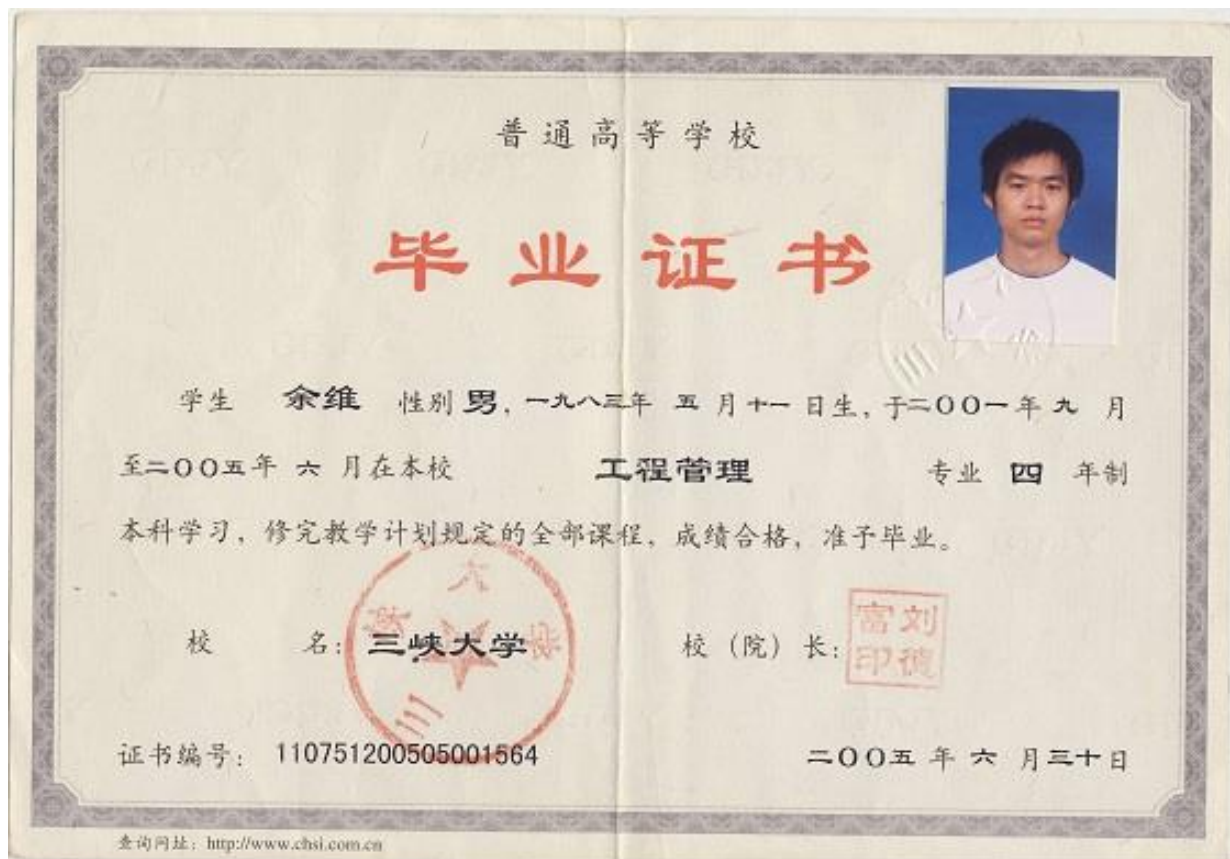 普通高等学校
毕业证书
学生 余维 性别 男，一九八三年 五 月 十一 日生，于二〇〇一年 九 月
至二〇〇五年 六 月在本校 工程管理 专业 四 年制
本科学习，修完教学计划规定的全部课程，成绩合格，准予毕业。
校 名：三峡大学 校（院）长：
三峡大学
刘德
富印
证书编号：110751200505001564 二〇〇五 年 六 月三十日
查询网址：http://www.chsi.com.cn